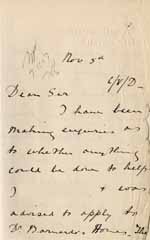 Nov. 3rd
Dear Sir
I have been
making enquiries as
to whether anything
could be done to help
I & was
advised to apply to
Dr Barnardo's Homes. The